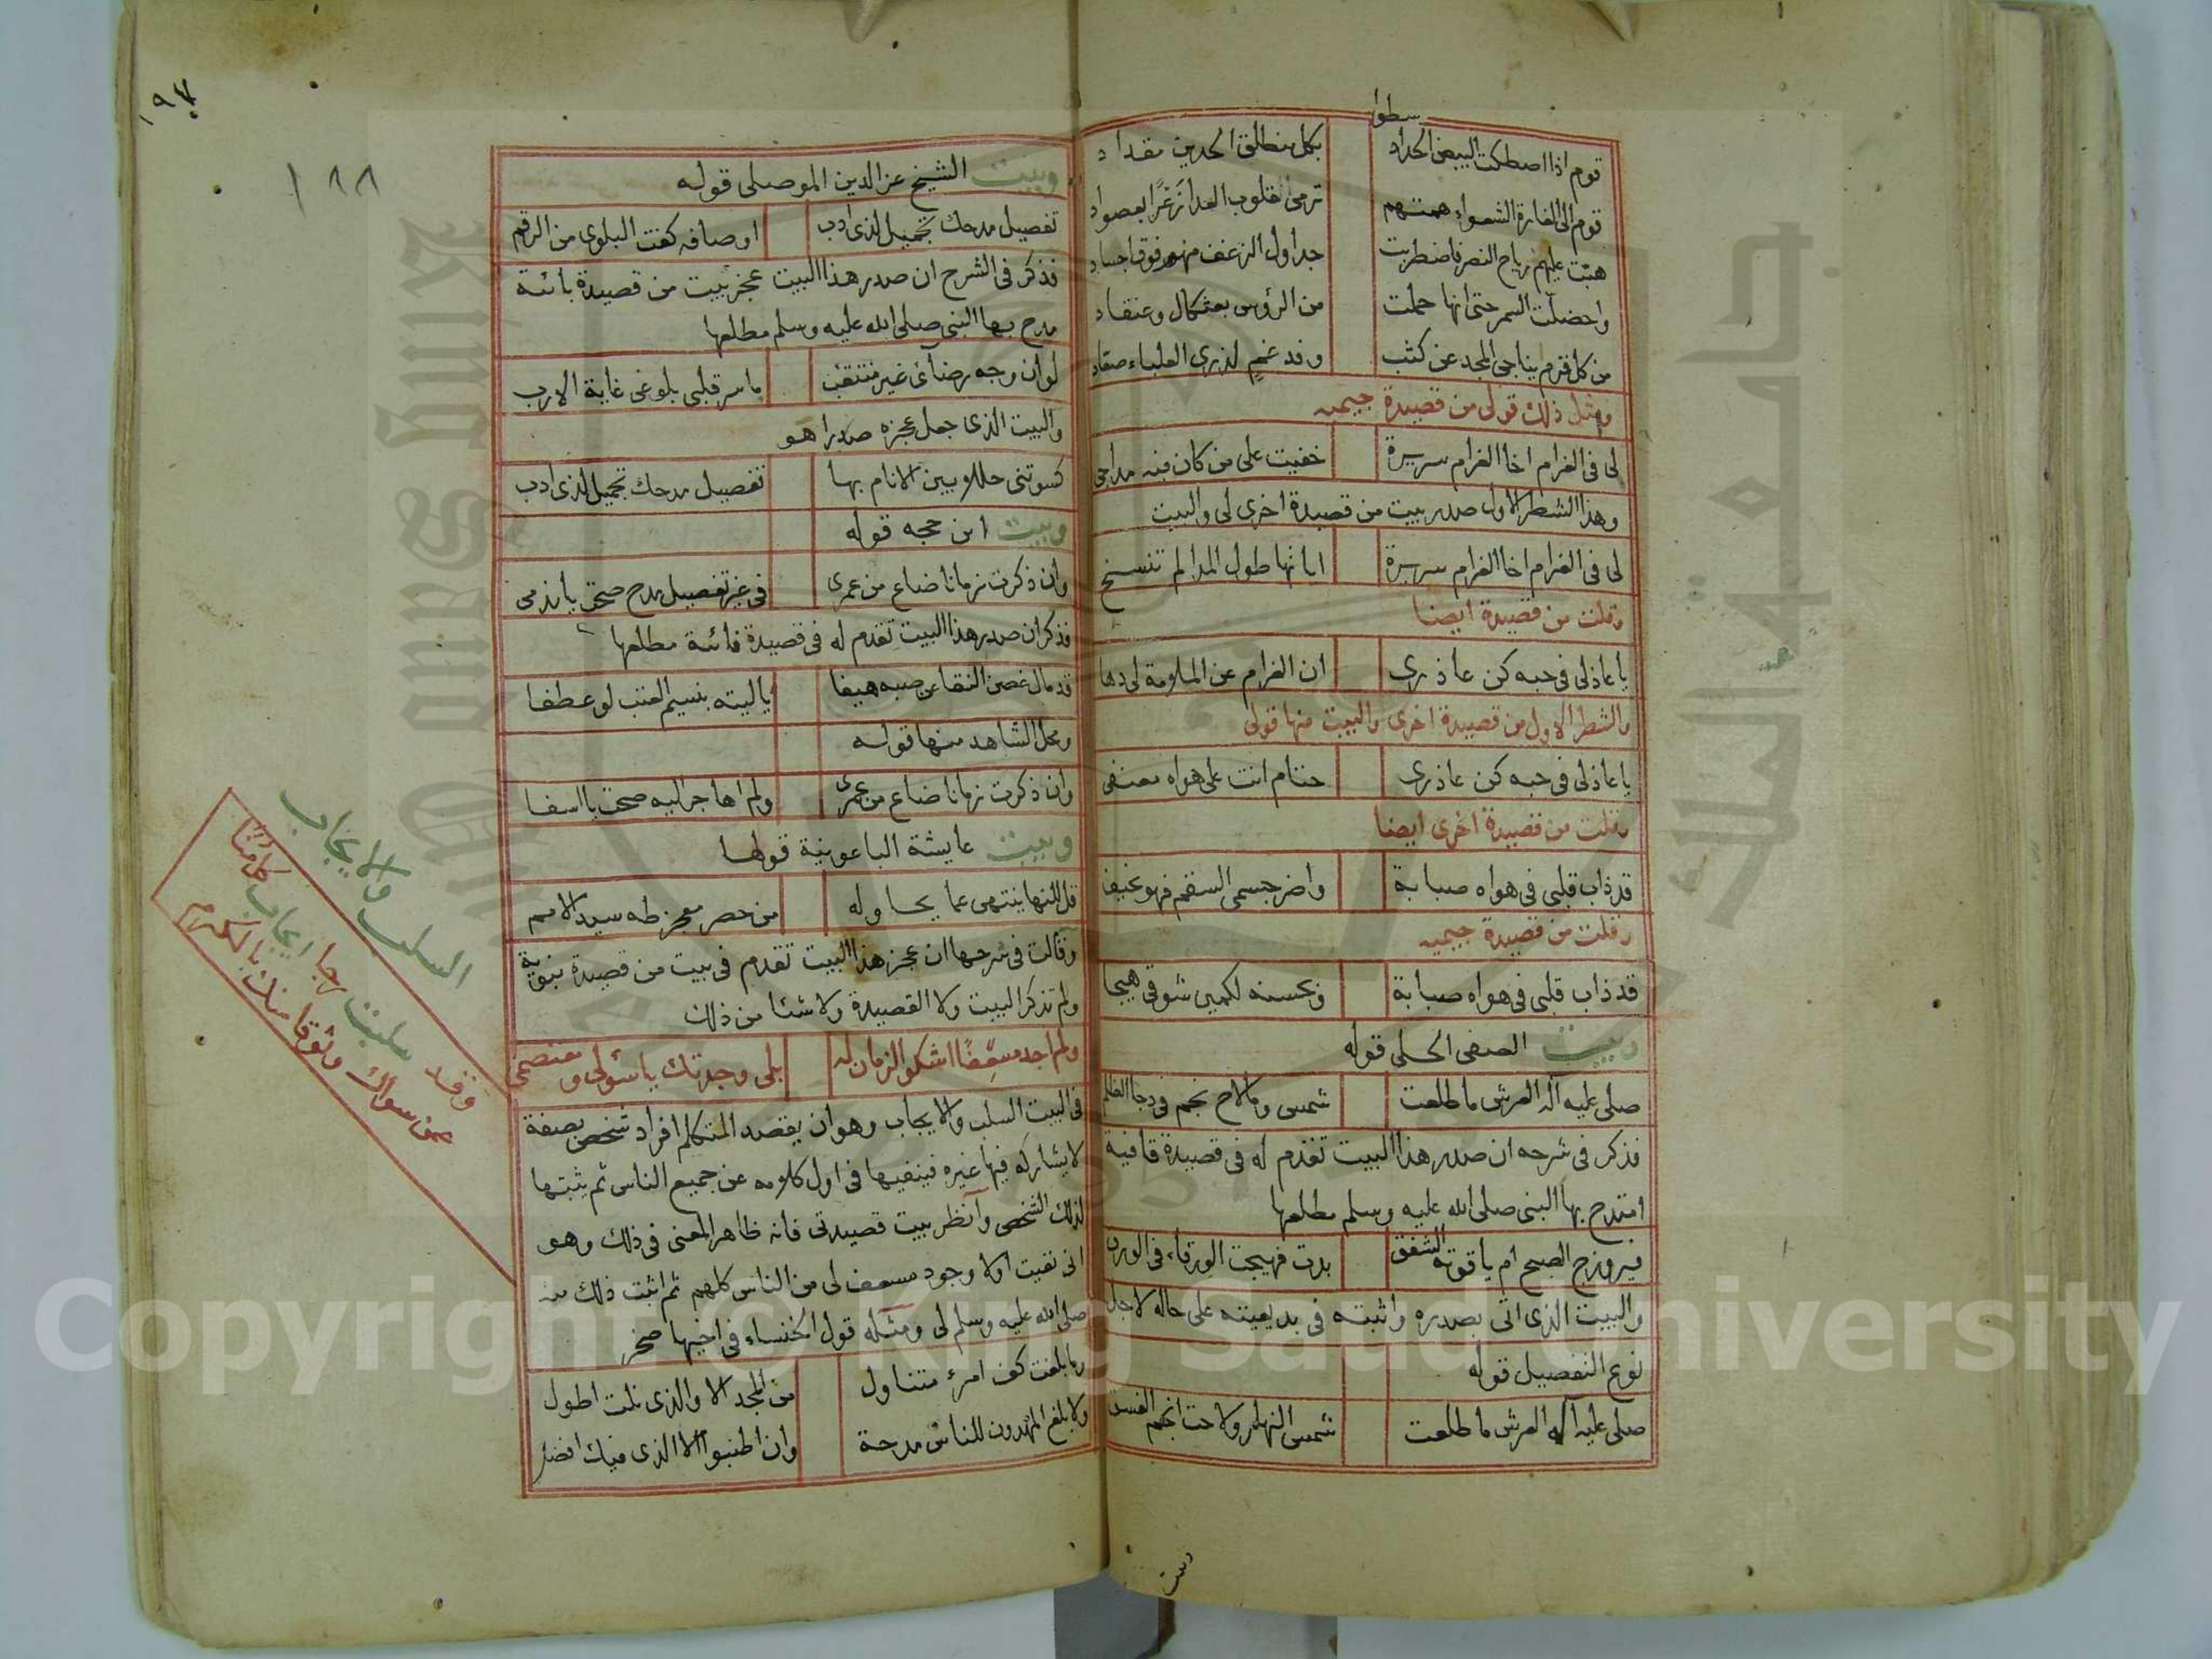 سطوا
قوم اذا اصطكت البيض الحداد بكل منطلق الحدين مقداد
قوم الى الغارة الشعواء همتهم ترمى القلوب العدا
هبت عليهم رياح النصر فاضطربت جداول الزغف منهم فوق اجساد
واخضلت السمر حتى انها حملت من الرؤس بعثكال وعنقاد
من كل قرم يناجى المجد عن كثب لذرى العلياء صعاد
ومثل ذلك قولى من قصيدة جيميه
لى فى الغرام اخا الغرام سريرة خفيت على من كان فيه مداجى
وهذا الشطر الاول صدر بيت من قصيدة اخرى لى والبيت
لى فى الغرام اخا الغرام سريرة اياتها طول المدا لم تنسخ
وقلت من قصيدة ايضا
يا عاذلى فى حبه كن عاذرى ان الغرام عن الملومة لى دها
والشطر الاول من قصيدة اخرى والبيت منها قولى
يا عاذلى فى حبه كن عاذرى حتام انت على هواه معنفى
وقلت من قصيدة اخرى ايضا
قد ذاب قلبى فى هواه صبابة واضر جسمى السقم فهو نحيف
وقلت من قصيدة جيميه
قد ذاب قلبى فى هواه صبابة وبحسنه لكمين شوقى هيجا
وبيت الصفى الحلى قوله
صلى عليه اله العرش ما طلعت شمس وما لاح نجم فى دجا الظلم
فذكر فى شرحه ان صدر هذا البيت تقدم له فى قصيدة قافية
امتدح بها النبى صلى الله عليه وسلم مطلعها
فيروزج الصبح ام ياقوتة الشفق بدت فهيجت الورقاء فى الورق
والبيت الذى اتى بصدره واثبته فى بديعيته على حاله لاجل
نوع التفصيل قوله
صلى عليه اله العرش ما طلعت شمس النهار ولاحت انجم الغسق
وبيت
١٨٨
وبيت الشيخ عز الدين الموصلى قوله
تفصيل مدحك تجميل لذى ادب اوصافه كفت البلوى من الرقم
فذكر فى الشرح ان صدر هذا البيت عجز بيت من قصيدة بائية
مدح بها النبى صلى الله عليه وسلم مطلعها
لو ان وجه رضائى غير منتقب ما سر قلبى بلوغى غاية الارب
والبيت الذى جعل عجزه صدرا هو
كسوتنى حللا بين الانام بها تفصيل مدحك تجميل لذى ادب
وبيت ابن حجه قوله
وان ذكرت زمانا ضاع من عمرى فى غير تفصيل مدح صحت يا ندمى
فذكر ان صدر هذا البيت تقدم له فى قصيدة فائية مطلعها
قد مال غصن النقا عن صبه هيفا يا ليته بنسيم العتب لو عطفا
ومحل الشاهد منها قوله
وان ذكرت زمانا ضاع من عمرى ولم اهاجر اليه صحت يا اسفا
وبيت عايشة الباعونية قولها
قل للنها ينتهى عما يحاوله من حصر معجز طه سيد الامم
وقالت فى شرحها ان عجز هذا البيت تقدم فى بيت من قصيدة نبوية
ولم تذكر البيت ولا القصيدة ولا شئا من ذلك
ولم اجد مسعفا اشكو الزمان له بلى وجدتك يا سؤلى ومعتصمى
فى البيت السلب والايجاب وهو ان يقصد المتكلم افراد شخص بصفة
لا يشاركه فيها غيره فينفيها فى اول كلامه عن جميع الناس ثم يثبتها
لذلك الشخص وانظر بيت قصيدتى فانه ظاهر المعنى فى ذلك وهو
انى نفيت اولا وجود مسعف لى من الناس كلهم ثم اثبت ذلك منه
صلى الله عليه وسلم لى ومثله قول الخنساء فى اخيها صخر
وما بلغت كف امرئ متناول من المجد الا والذى نلت اطول
ولا بلغ المهدون للناس مدحة وان اطنبوا الا الذى فيك افضل
السلب والايجاب
وقد سلبت رجا ايجاب كل منا
عن سواك وثوقا منك بالكرم
Copyright © King Saud University